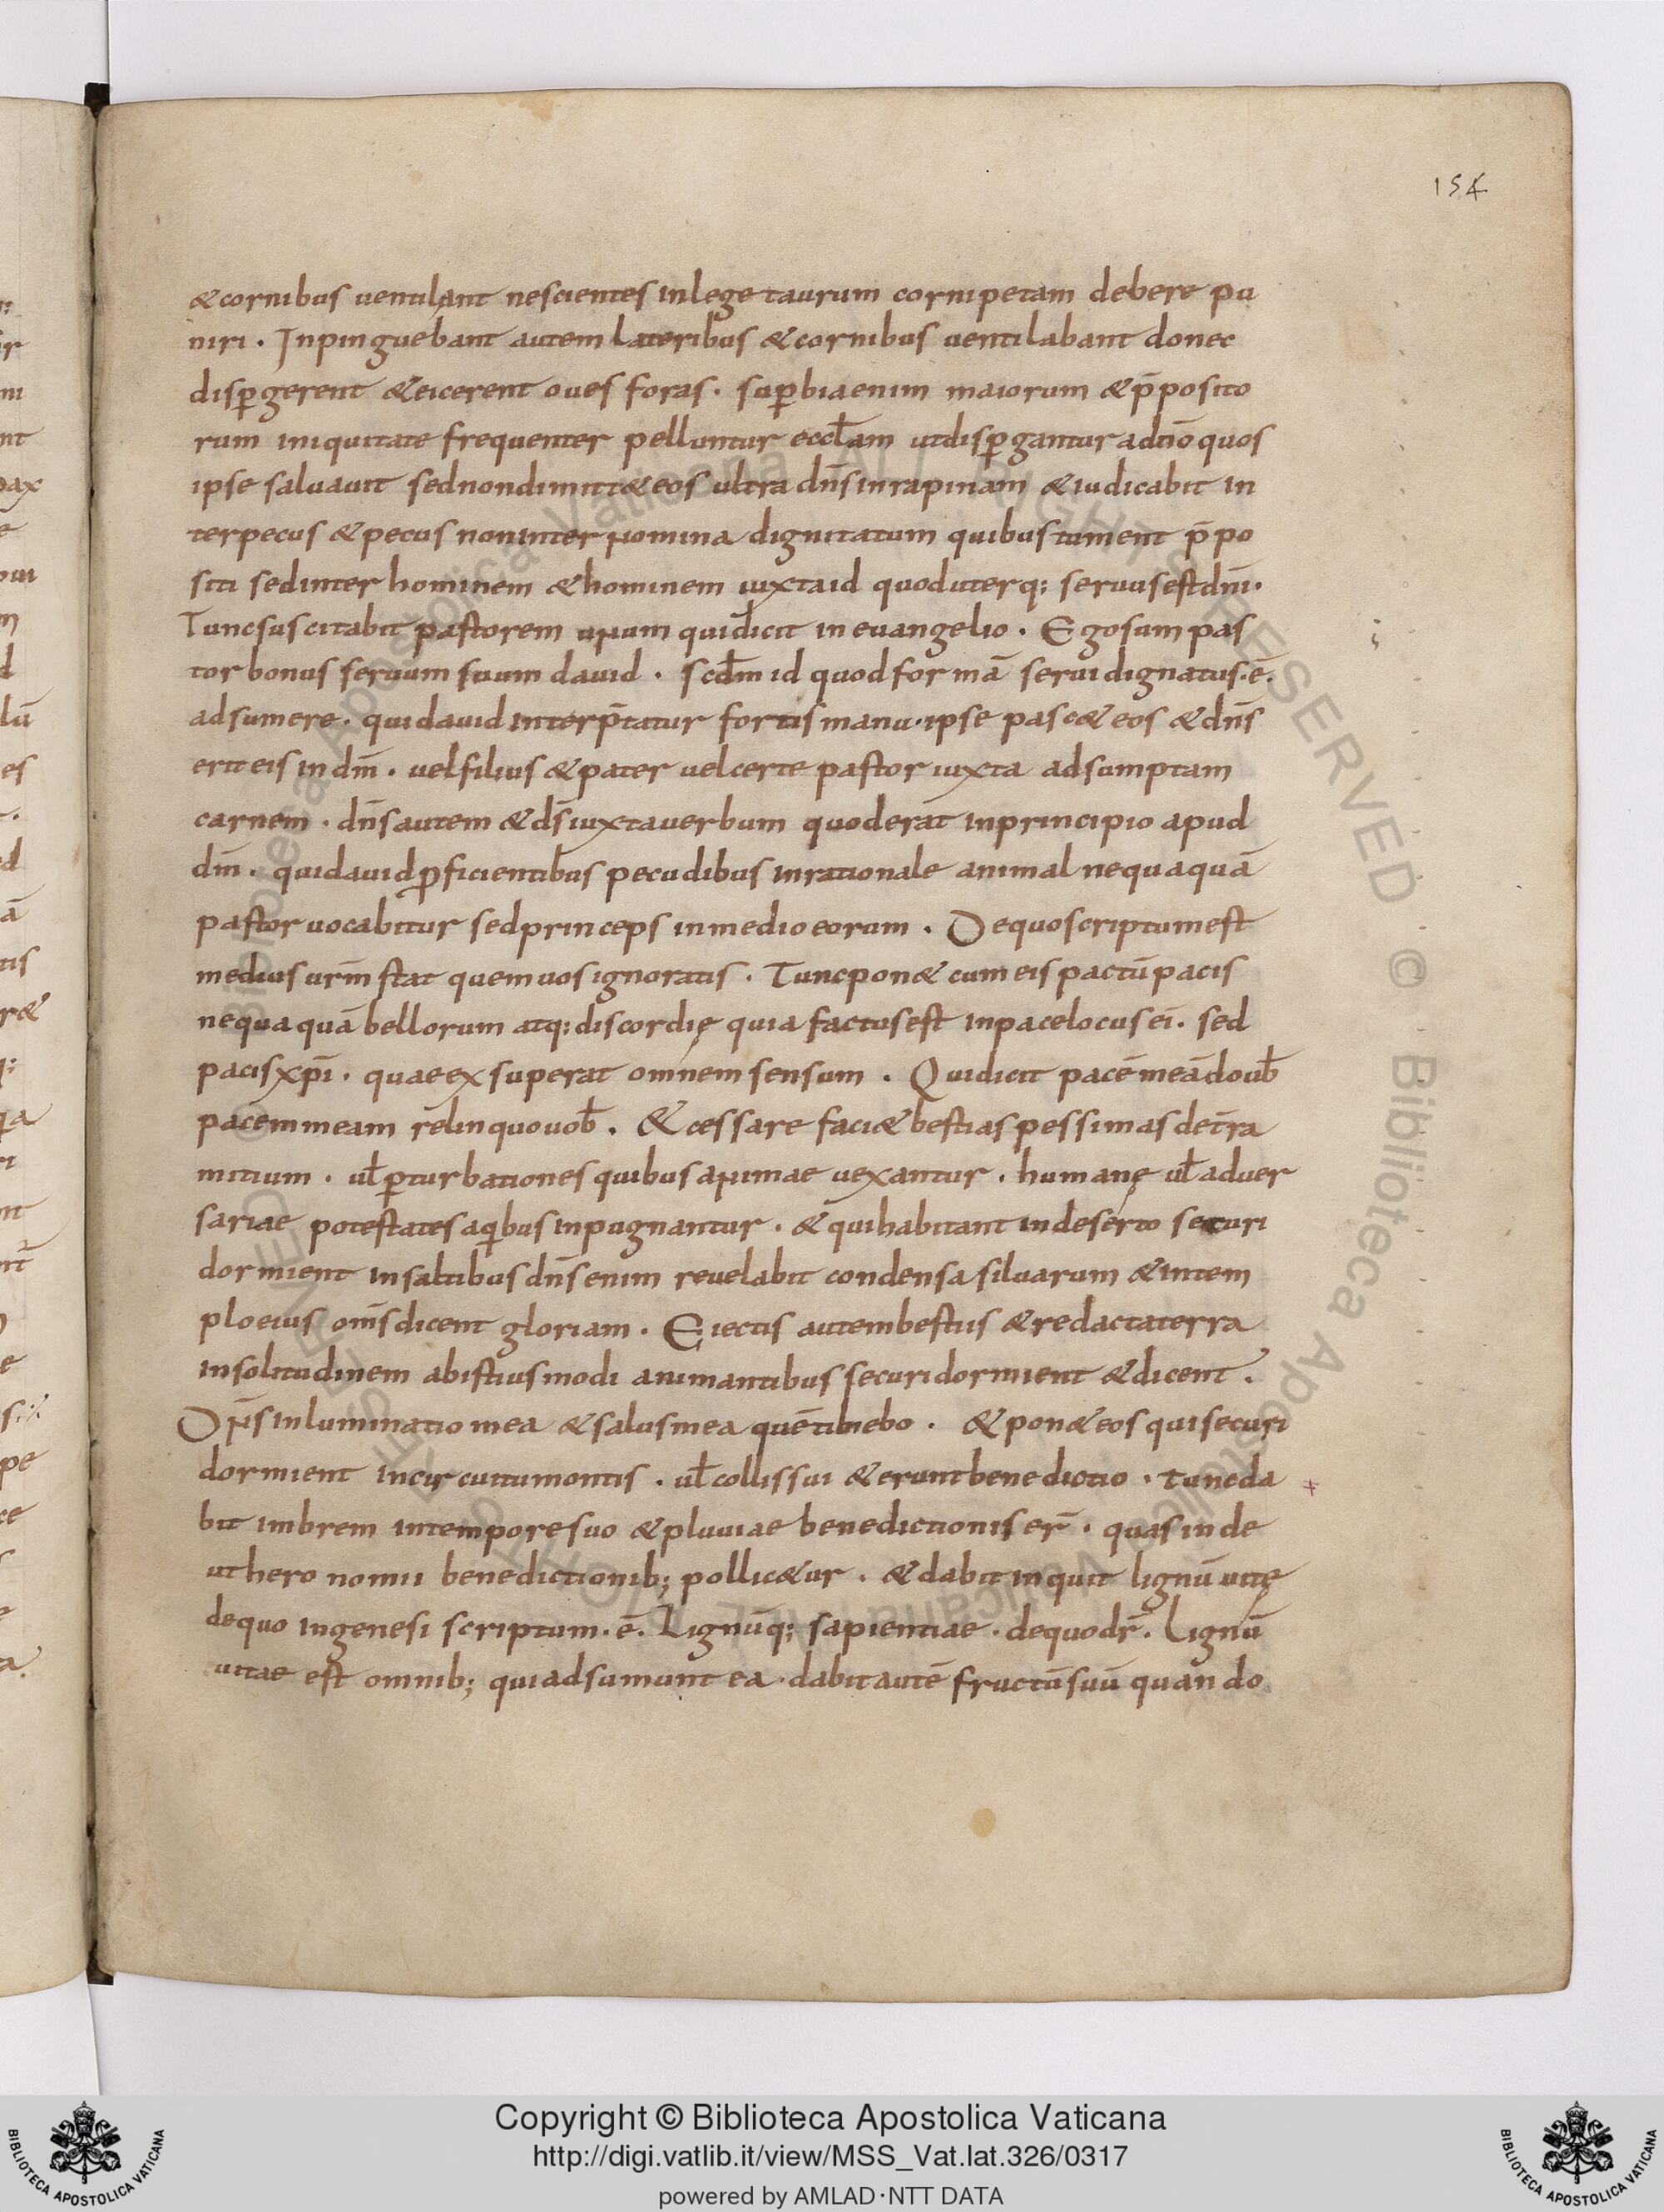 154
&cornibus uentilant nescientes inlege taurum cornipetam debere pu
niri . Inpinguebant autem lateribus &cornibus uentilabant donec
disꝑgerent &eicerent oues foras . suꝑbiaenim maiorum &p̄posito
rum iniquitate frequenter pelluntur eccl̄am utdisꝑgantur adtio quos
ipse saluauit sednondimitt& eos ultra dn̄s inrapinam &iudicabit in
terpecus &pecus noninter nomina dignitatum quibus tument p̄po
siti sedinter hominem &hominem iuxtaid quoduterq; seruusest dn̄i .
Tuncsuscitabit pastorem unum quidicit in euangelio . Egosum pas
tor bonus seruum suum dauid . scd̄m id quod formā serui dignatus .ē.
adsumere . quidauid interp̄tatur fortis manu . ipse pasc& eos &dn̄s
erit eis in dm̄ . uelfilius &pater uelcerte pastor iuxta adsumptam
carnem . dn̄s autem &ds̄ iuxtauerbum quoderat inprincipio apud
dm̄ . quidauid ꝓficientibus pecudibus inrationale animal nequaquā
pastor uocabitur sedprinceps inmedio eorum . Dequoscriptumest
medius urm̄ stat quem uos ignoratis . Tuncpon& cum eis pactū pacis
nequaquā bellorum atq; discordię quia factusest inpacelocus ei . sed
pacis xp̄i . quaeexsuperat omnem sensum . Quidicit pacē meā doub̄
pacemmeam relinquouob̄ . & cessare faci& bestias pessimas det̄ra
mitium . ul̄ ꝑturbationes quibus animae uexantur . humanę ul̄ aduer
sariae potestates aqibus inpugnantur . & quihabitant indeserto securi
dormient insaltibus dn̄s enim reuelabit condensa siluarum &intem
ploeius om̄s dicent gloriam . Eiectis autembestiis &redactaterra
insolitudinem abistiusmodi animantibus securidormient &dicent .
Dn̄s inluminatio mea &salusmea quētimebo . &pon& eos quisecuri
dormient incircuitumontis . ul̄ collissui &eruntbenedictio . tuncda
bit imbrem intemporesuo &pluuiae benedictionis er̄ . quas inde
uthero nomii benedictionib; pollic&ur . &dabit inquit lignū uitę
dequo ingenesi scriptum .ē. Lignūq; sapientiae . dequodr̄ . Lignū
uitae est omnib; quiadsumunt ea . dabitautē fructūsuū quando
Copyright © Biblioteca Apostolica Vaticana
http://digi.vatlib.it/view/MSS_Vat.lat.326/0317
powered by AMLAD·NTT DATA
BIBLIOTECA APOSTOLICA VATICANA
BIBLIOTECA APOSTOLICA VATICANA